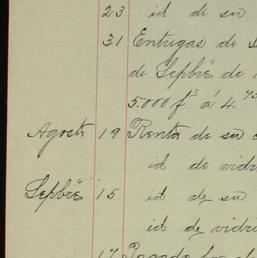 23 id de su
31 Entregas de
de Sepbre de
5.000 fs á 4.75
Agosto 19 Renta de su
id de vidri
Sepbre 15 id de su
id de vidri
17 Pagado